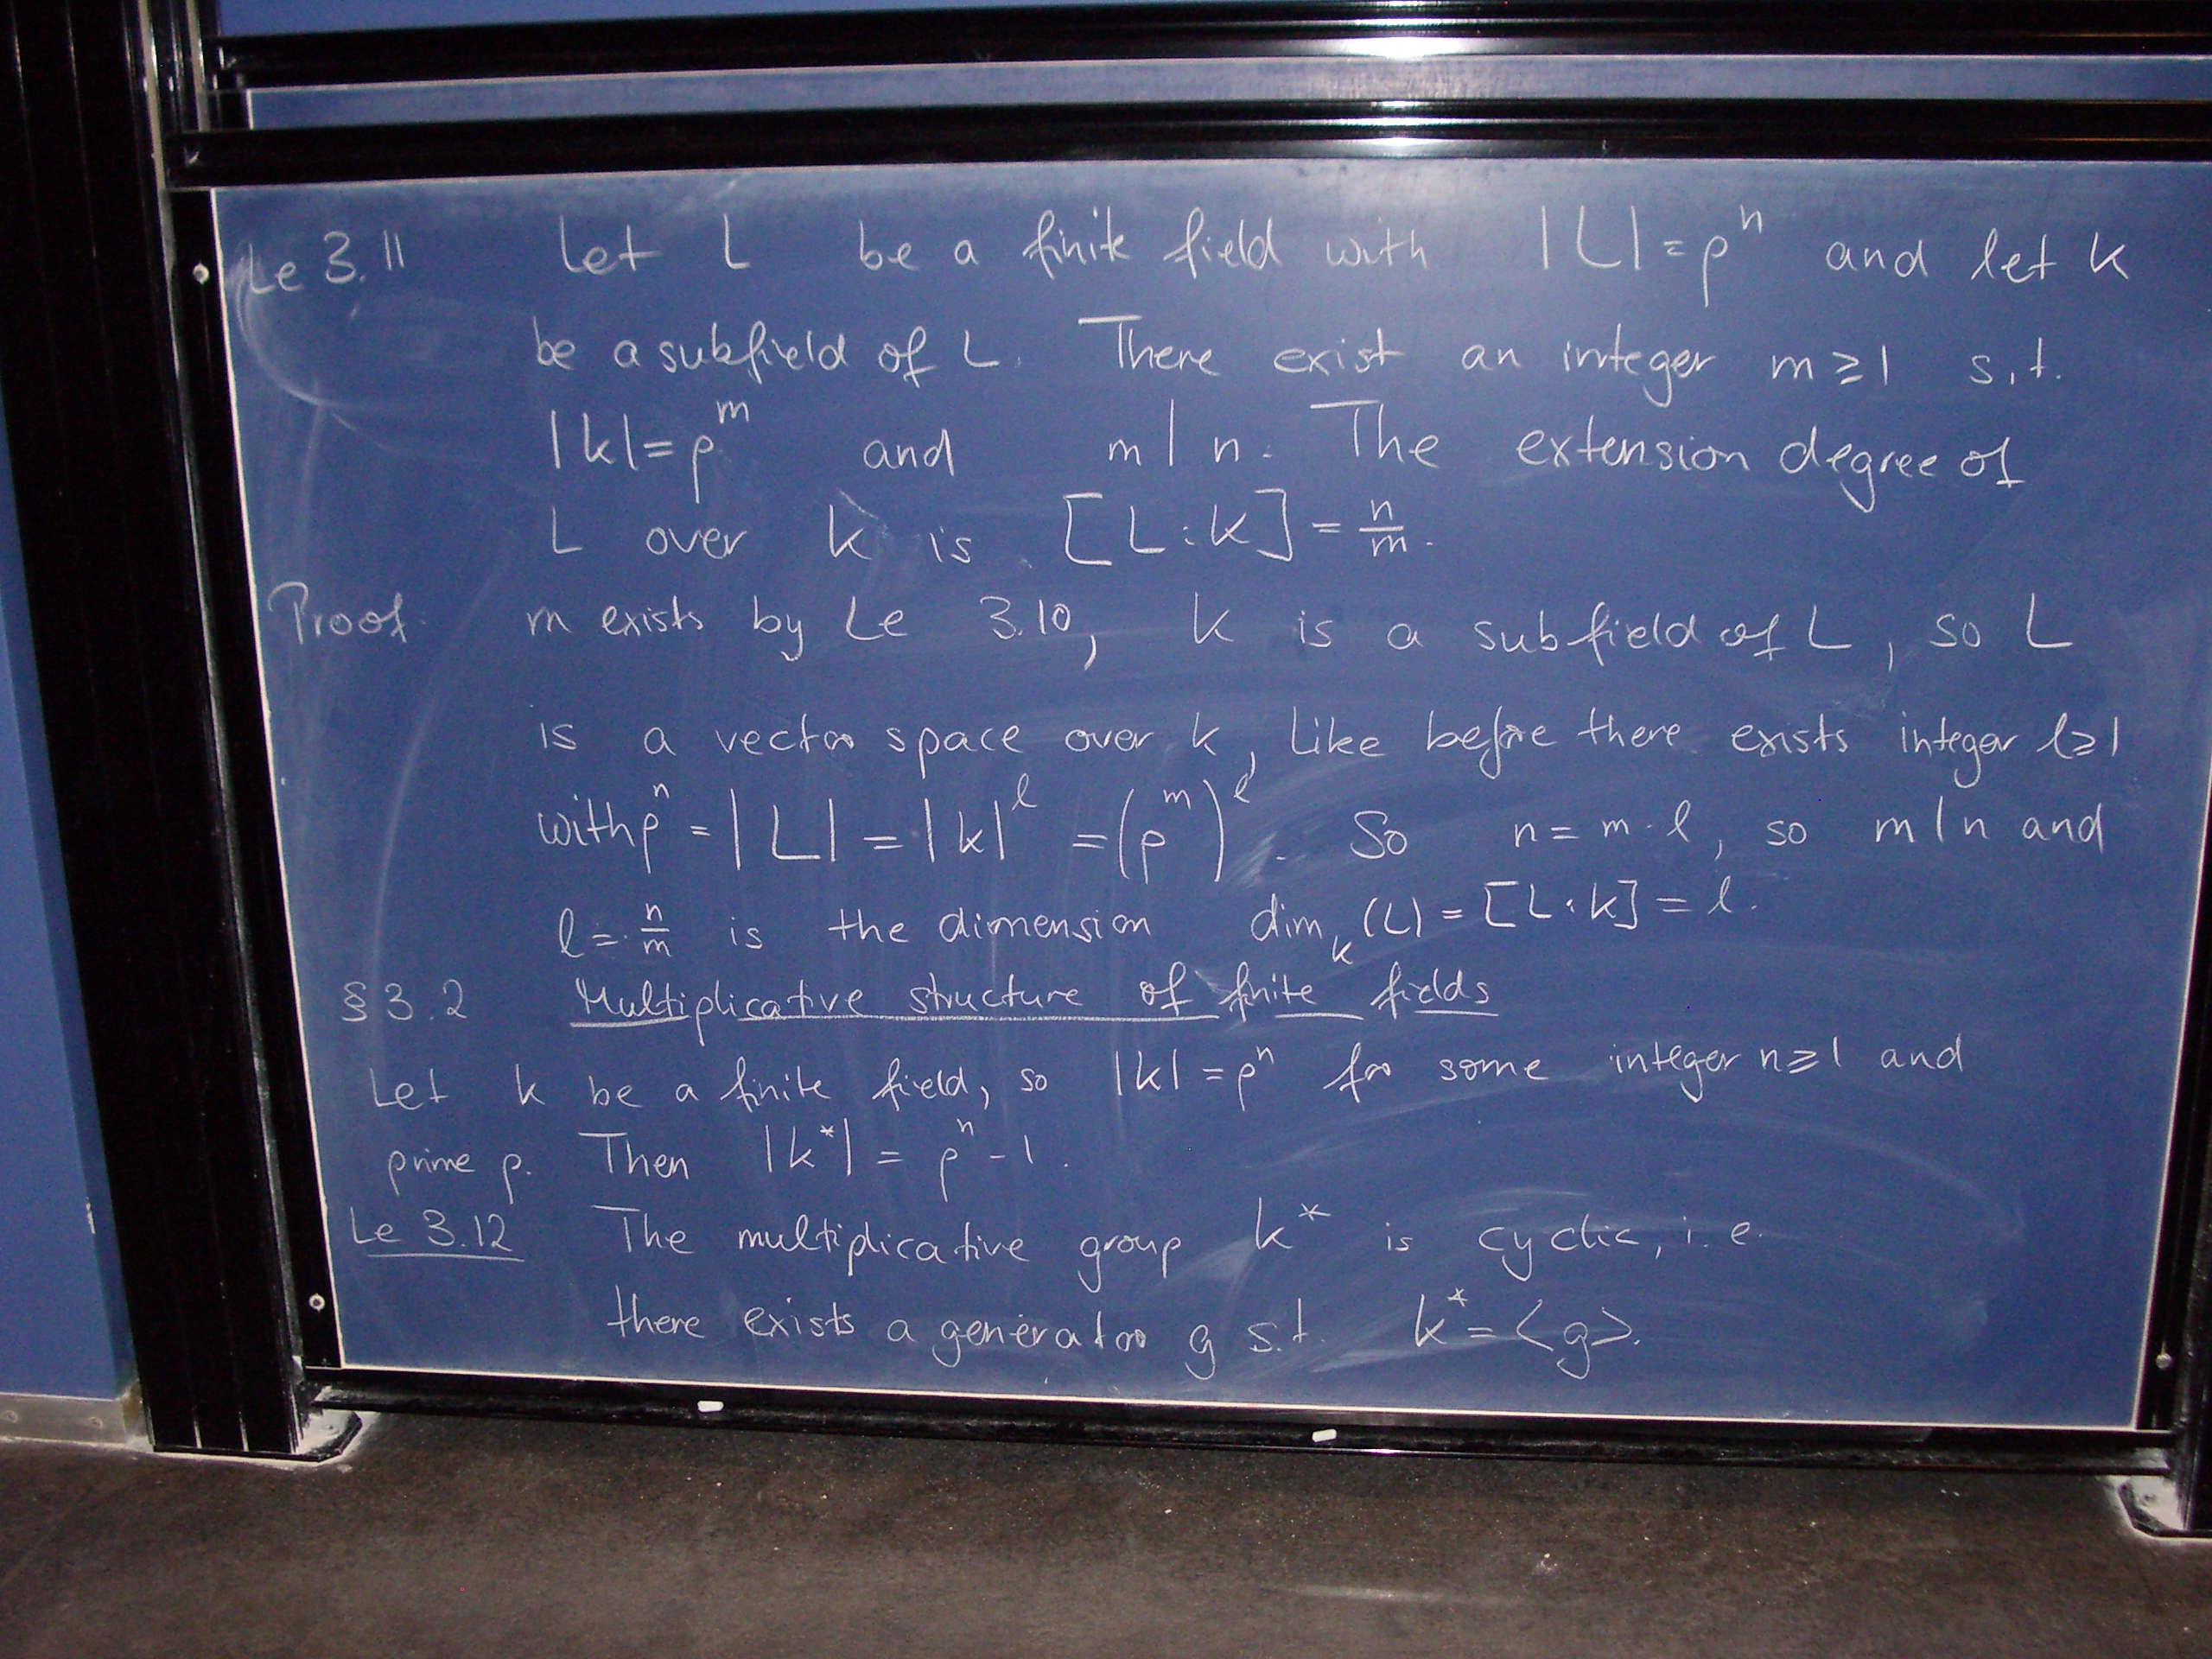 Le 3.11 Let L be a finite field with |L| = pⁿ and let k
be a subfield of L. There exist an integer m ≥ 1 s.t.
|k| = pᵐ and m | n. The extension degree of
L over k is [L:k] = n/m.
Proof. m exists by Le 3.10, k is a subfield of L, so L
is a vector space over k, Like before there exists integer l ≥ 1
with pⁿ = |L| = |k|ˡ = (pᵐ)ˡ. So n = m · l, so m | n and
l = n/m is the dimension dimₖ(L) = [L:k] = l.
§3.2 Multiplicative structure of finite fields
Let k be a finite field, so |k| = pⁿ for some integer n ≥ 1 and
prime p. Then |k*| = pⁿ - 1.
Le 3.12 The multiplicative group k* is cyclic, i.e.
there exists a generator g s.t. k* = <g>.